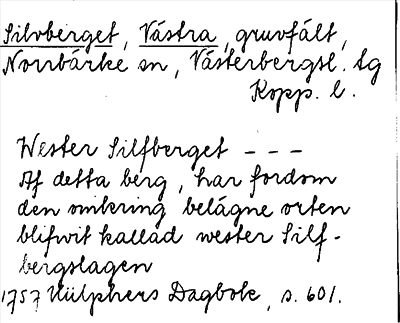 Silvberget, Västra, gruvfält,
Norrbärke sn, Västerbergsl. tg
Kopp. l.
Wester Silfberget - - -
Af detta berg, har fordom
den omkring belägne orten
blifwit kallad wester Silf-
bergslagen
1757 Hülphers Dagbok, s. 601.